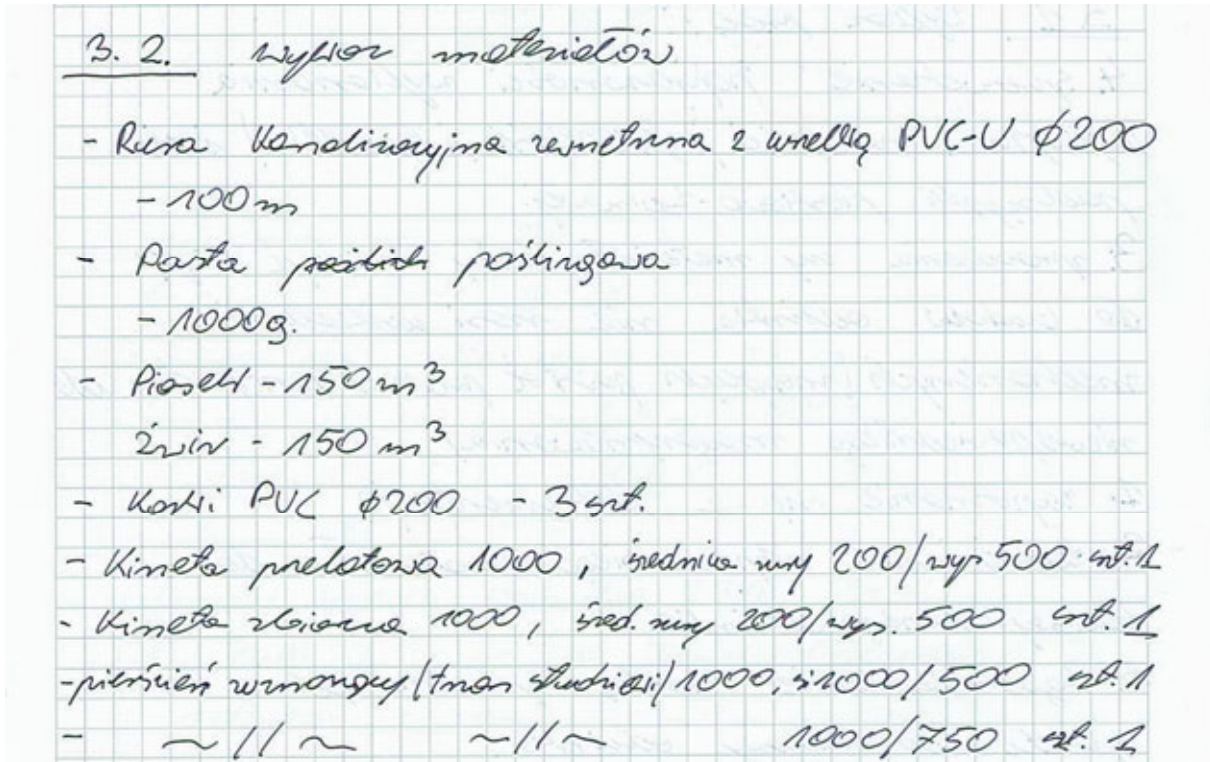 3.2. wykaz materiałów
- Rura kanalizacyjna zewnętrzna z uszelką PVC-U ϕ200
- 100 m
- Pasta poślizgowa
- 1000g.
- Piasek - 150 m³
Żwir - 150 m³
- Korki PVC ϕ200 - 3 szt.
- Kineta przelotowa 1000, średnica rury 200/wys 500 szt. 1
- Kineta zbiorcza 1000, śred. rury 200/wys. 500 szt. 1
- pierścień wznoszący (trzon studzienki) 1000, 1000/500 szt. 1
- ~//~ ~//~ 1000/750 szt. 1